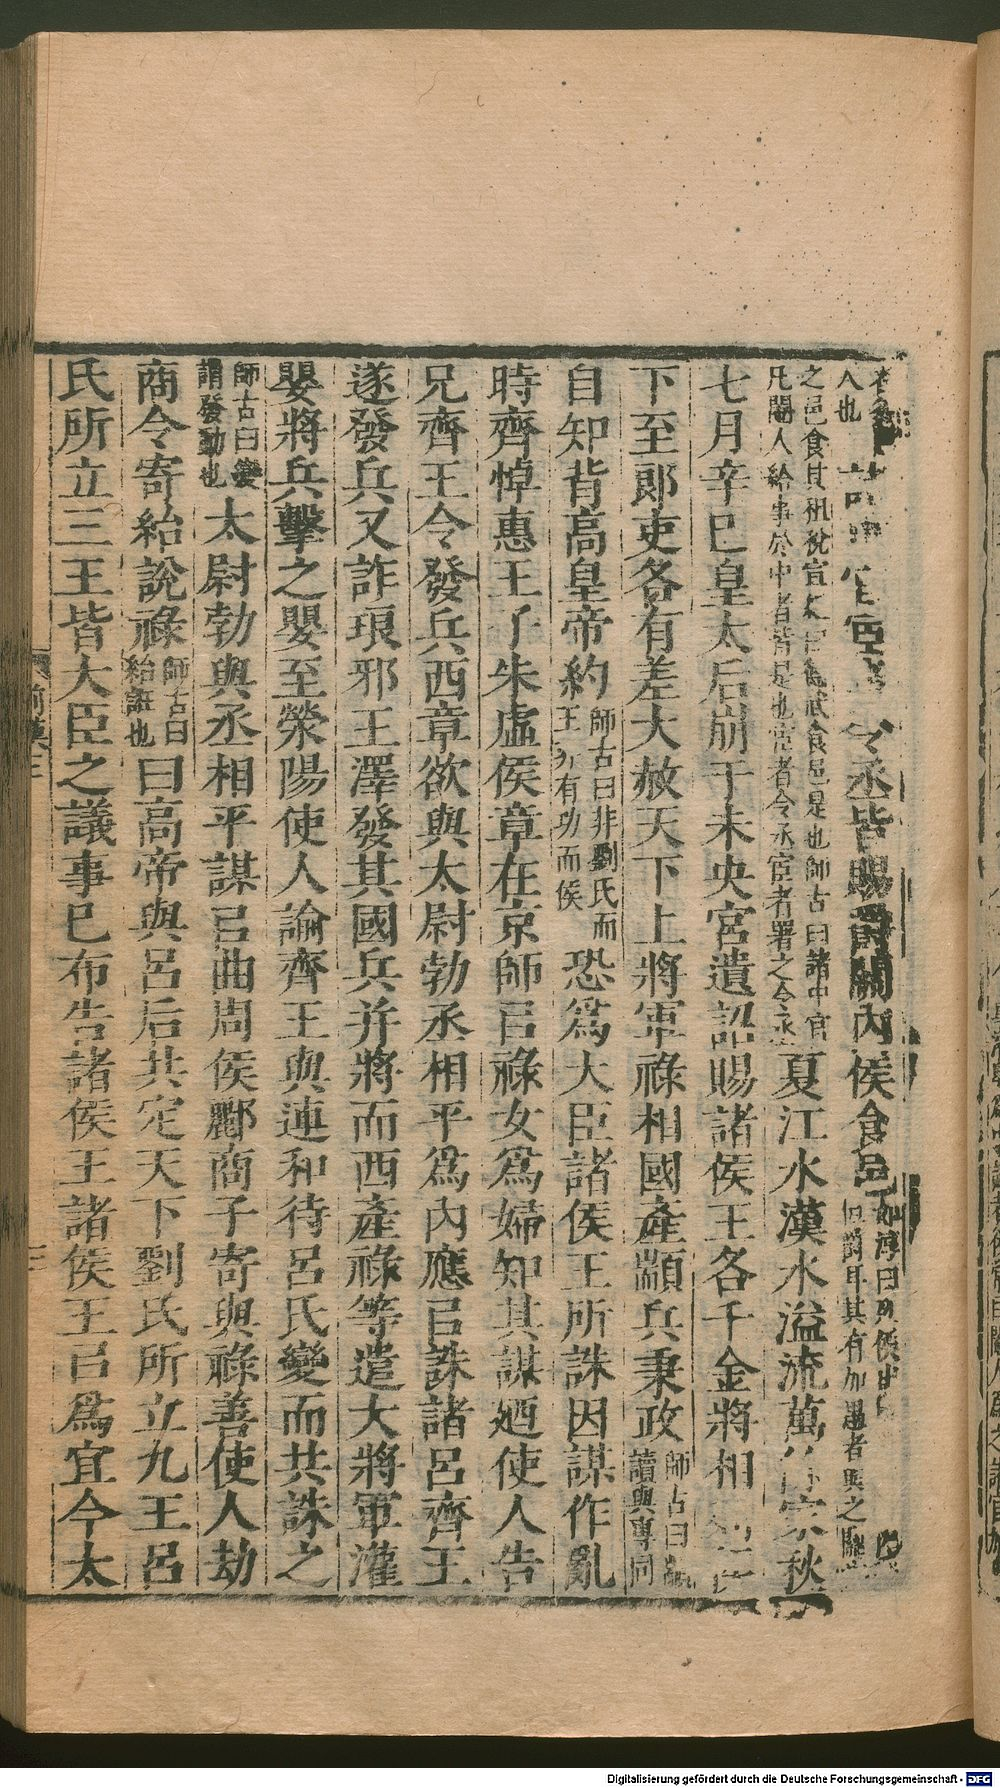 人也 宦 令丞皆賜爵關內侯食邑 如淳曰列侯 但爵耳其有加異者與之關
之邑食其租稅宣 食邑是也師古曰諸中官 凡閹人給事於中者皆是也宦者令丞宦者署之令丞 夏江水漢水溢流萬 家秋
七月辛巳皇太后崩于未央宮遺詔賜諸侯王各千金將相
下至郎吏各有差大赦天下上將軍祿相國產顓兵秉政 師古曰顓讀與專同
自知背高皇帝約 師古曰非劉氏而王非有功而侯 恐爲大臣諸侯王所誅因謀作亂
時齊悼惠王子朱虛侯章在京師㠯祿女爲婦知其謀廼使人告
兄齊王令發兵西章欲與太尉勃丞相平爲內應㠯誅諸呂齊王
遂發兵又詐琅邪王澤發其國兵并將而西產祿等遣大將軍灌
嬰將兵擊之嬰至滎陽使人諭齊王與連和待呂氏變而共誅之
師古曰變謂發動也 太尉勃與丞相平謀㠯曲周侯酈商子寄與祿善使人劫
商令寄紿說祿 師古曰紿誑也 曰高帝與呂后共定天下劉氏所立九王呂
氏所立三王皆大臣之議事已布告諸侯王諸侯王㠯爲宜今太
前漢三
三
Digitalisierung gefördert durch die Deutsche Forschungsgemeinschaft - DFG